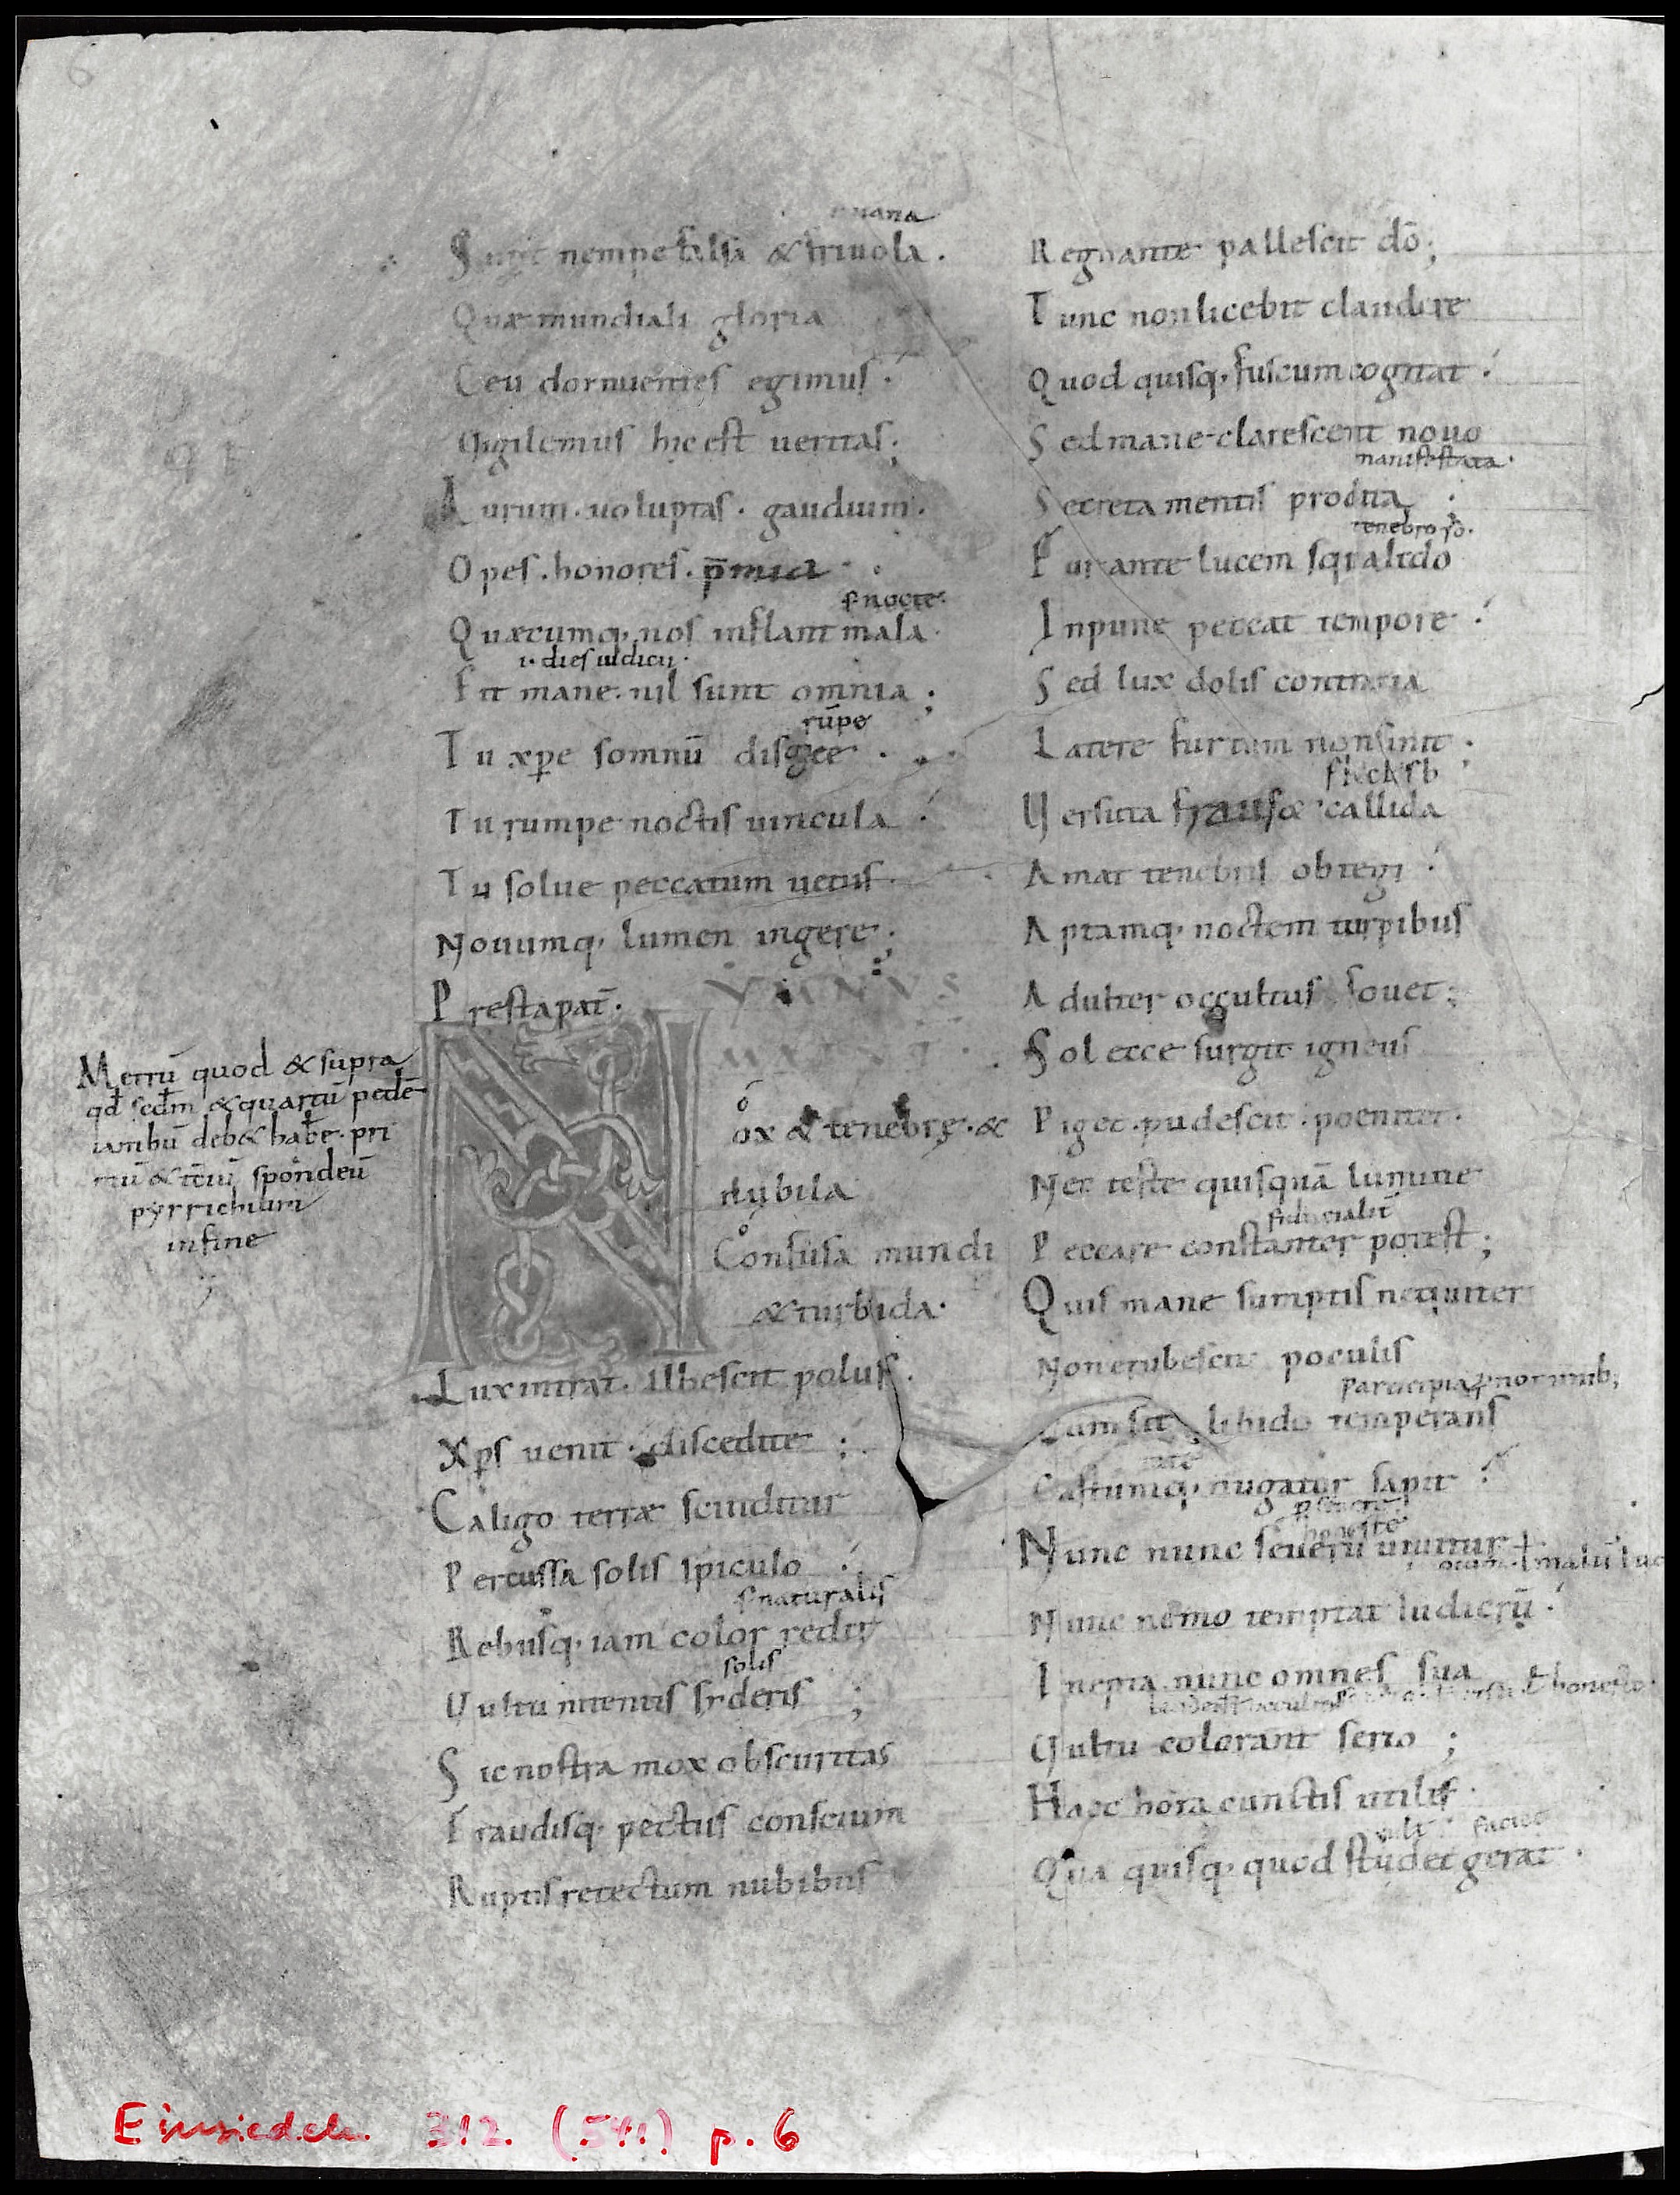 6
uana
Sunt nempe falsa & friuola.
Quæ mundiali gloria
Ceu dormientes egimus.
Uigilemus hic est ueritas;
Aurum. uoluptas. gaudium.
Opes. honores. p̄mia
s nocte.
Quæcumq; nos inflant mala.
i. dies iudicii.
Fit mane. nil sunt omnia;
rūpe
Tu xp̄e somnū disiice.
Tu rumpe noctis uincula
Tu solue peccatum uetus.
Nouumq; lumen ingere;
Presta pat̄.
YMNVS
Metrū quod & supra
qd̄ scdm̄ & quartū pedē
iambū deb& hab̄e. pri
mū & t̄ciū spondeū
pyrrichium
in fine
Nox & tenebrę. &
nubila
Confusa mundi
& turbida.
Lux intrat. albescit polus.
Xp̄s uenit. discedite;
Caligo terræ scinditur
Percussa solis spiculo
s naturalis
Rebusq; iam color redit
solis
Uultu nitentis syderis;
Sic nostra mox obscuritas
Fraudisq; pectus conscium
Ruptis retectum nubibus
Regnante pallescit dō;
Tunc non licebit claudere
Quod quisq; fuscum cogitat
Sed mane clarescent nouo
manifestata.
Secreta mentis prodita;
tenebroso.
Fur ante lucem squalido
Inpune peccat tempore
Sed lux dolis contraria
Latere furtum non sinit;
Uersuta fraus & callida
Amat tenebris obtegi
Aptamq; noctem turpibus
Adulter occultus fouet;
Sol ecce surgit igneus
Piget. pudescit. poenitet.
Nec teste quisquā lumine
fiducialit̄
Peccare constanter potest;
Quis mane sumptis nequiter
Non erubescit poculis
Cum fit libido temperans
Castumq; nugator sapit
honeste
Nunc nunc seuerū uiuitur
Nunc nemo temptat ludicrū.
Inepta nunc omnes sua
Uultu colorant serio;
Haec hora cunctis utilis.
Qua quisq; quod studet gerat.
Einsiedeln 312. (541) p. 6